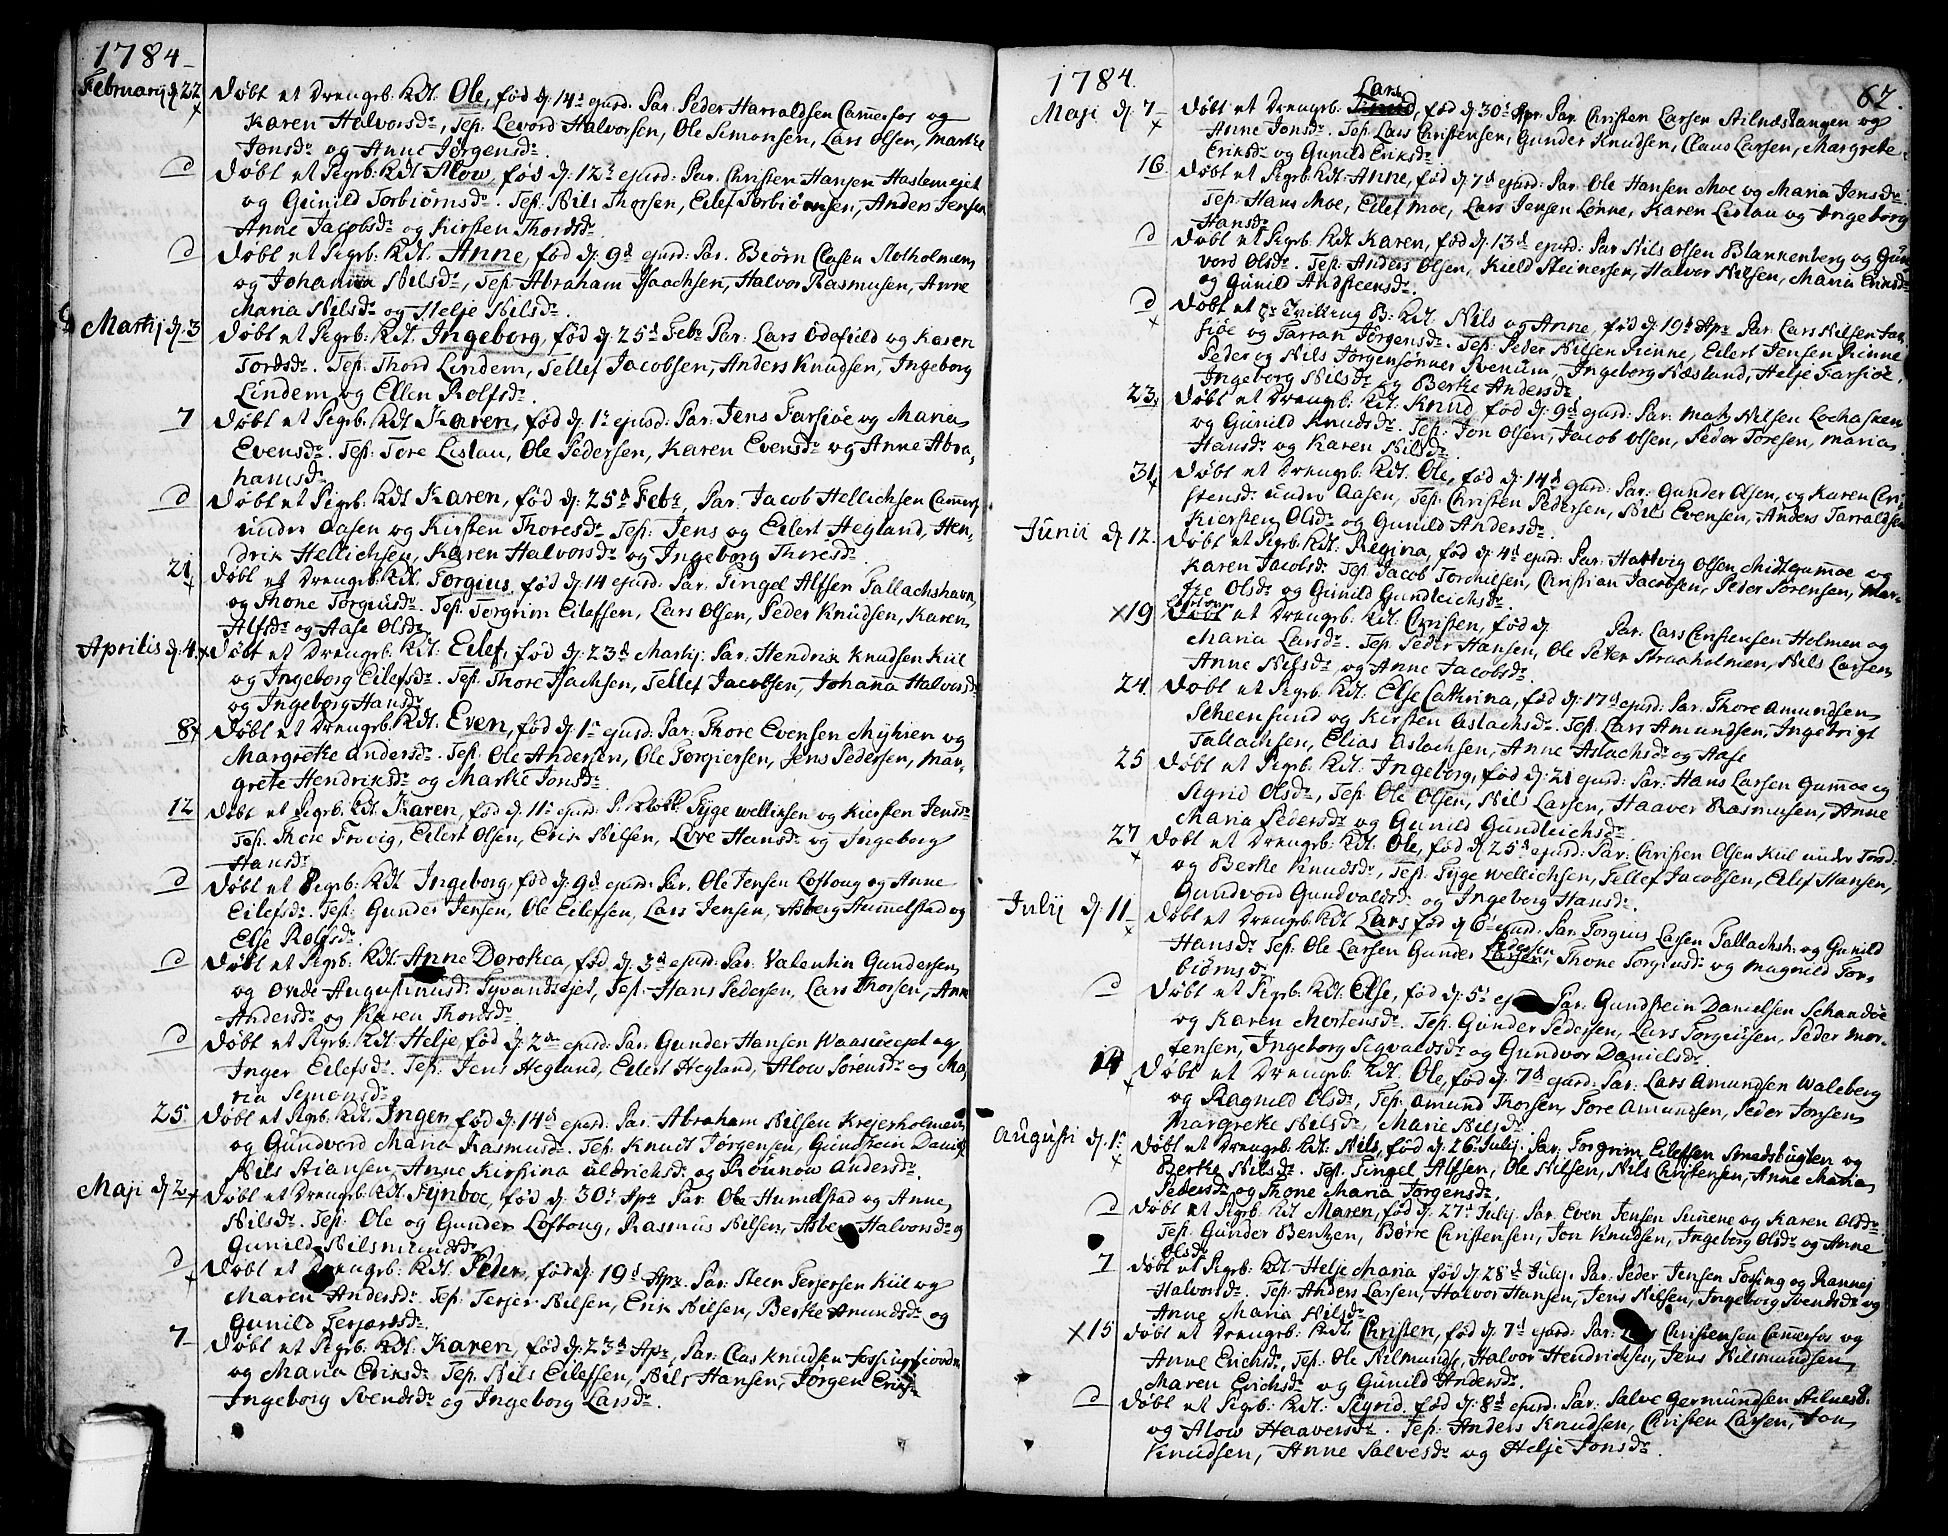 1784
Februarij d. 22 Døbt et Drengb: Kdt. Ole, fød d: 14d ejusd: Par: Peder Harraldsen Camerfos og
Karen Halvorsdr, Test: Levord Halvorsen, Ole Simonsen, Lars Olsen, Marthe
Jonsdr og Anne Jørgensdr.
d Døbt et Pigb: Kdt Alow, fød d: 12d ejusd: Par: Christen Hansen Haslemejet
og Gunild Torbiørnsdr. Test: Nils Thorsen, Eilef Torbiørnsen, Anders Jensen
Anne Jacobsdr og Kirsten Thordsdr.
d Døbt et Pigb: Kdt. Anne, fød d: 9d ejusd: Par: Biørn Clasen Slotholmen
og Johanna Nilsdr, Test: Abraham Isaachsen, Halvor Rasmusen, Anne
Maria Nilsdr og Helje Nilsdr.
Martij d: 3 Døbt et Pigb: Kdt Ingeborg, fød d: 25d Febr Par: Lars Ødefield og Karen
Tordsdr. Test: Thord Lindem, Tellef Jacobsen, Anders Knudsen, Ingeborg
Lindem og Ellen Rolfsdr.
7 Døbt et Pigb: Kdt Karen, fød d: 1d ejusd: Par: Jens Farsiøe og Maria
Evensdr. Test: Tore Listau, Ole Pedersen, Karen Evensdr og Anne Abra-
hamsdr
d Døbt et Pigb: Kdt Karen, fød d: 25d Febr, Par: Jacob Hellichsen Camerf
under Aasen og Kirsten Thoresdr Test: Jens og Eilert Hegland, Hen-
drik Hellichsen, Karen Halvorsdr og Ingeborg Thoresdr
21 Døbt et Drengb: Kdt. Torgius, fød d: 14 ejusd: Par: Tingel Alfsen Tallachshavn
og Thone Torgiusdr. Test: Torgrim Eilefsen, Lars Olsen, Peder Knudsen, Karen
Alfsdr og Aase Olsdr
Aprilis d: 4 Døbt et Drengb: Kdt. Eilef, fød d: 23d Martij: Par: Hendrik Knudsen Kiil
og Ingeborg Eilefsdr. Test: Thore Isachsen, Tellef Jacobsen, Johanna Halvorsdr
og Ingeborg Hansdr
8 Døbt et Drengb: Kdt. Even, fød d: 1d ejusd: Par: Thore Evensen Myhren og
Margrethe Andersdr. Test: Ole Andersen, Ole Torgiersen, Jens Pedersen, Mar-
grete Hendriksdr og Marthe Jonsdr.
12 Døbt et Pigb: Kdt. Karen, fød d: 11d ejusd: P. Klokk. Tyge Wellixsen og Kiersten Jensdr
Test: Thore Trovig, Eilert Olsen, Erik Nilsen, Live Hansdr og Ingeborg
Hansdr
d Døbt et Pigb: Kdt Ingeborg, fød d: 9d ejusd: Par. Ole Jensen Loftoug og Anne
Eilefsdr. Test: Gunder Jensen, Ole Eilefsen, Lars Jensen, Asberg Hummelstad og
Else Rolfsdr.
d Døbt et Pigb: Kdt. Anne Dorothea, fød d: 3d ejusd: Par: Valentin Gundersen
og Ovede Augustinusd: Tyvandsejet, Test: Hans Pedersen, Lars Thorsen, Anne
Andersdr og Karen Thordsdr.
d Døbt et Pigb: Kdt: Helje, fød d: 2d ejusd: Par: Gunder Hansen Waasiøejet og
Inger Eilefsdr. Test: Jens Hegland, Eilert Hegland, Alow Sørensdr og Ma-
ria Simonsdr
25. Døbt et Pigb: Kdt. Inger, fød d: 14d ejusd: Par: Abraham Nilsen Krejerholmen
og Gundvord Maria Rasmusdr. Test: Knudt Jørgensen, Gundstein Daniels
Nils Stiansen, Anne Kirstina Uldrichsdr og Rounow Andersdr.
Maji d: 2 Døbt et Drengb: Kdt. Fynboe, fød d: 30d Apr: Par: Ole Humelstad og Anne
Nilsdr. Test: Ole og Gunder Loftoug, Rasmus Nilsen, Asberg Halvorsdr og
Gunild Nilsmundsdr
d Døbt et Drengb: Kdt. Peder, fød d: 19d Apr: Par: Steen Terjersen Kiil og
Maren Andersdr. Test: Terjer Nilsen, Erik Nilsen, Berthe Amundsdr og
Gunild Terjersdr.
7 Døbt et Pigb: Kdt: Karen, fød d: 23d Apr: Par: Clas Knudsen Fossingfiorden
og Maria Eriksdr Test: Nils Eilefsen, Nils Hansen, Jørgen Eriks
Ingeborg Svendsdr og Ingeborg Larsdr.
1784. 62.
Maji d: 7 Døbt et Drengb: Lars, fød d: 30d Apr: Par: Christen Larsen Stilnæstangen og
Anne Jonsdr. Test: Lars Christensen, Gunder Knudsen, Claus Larsen, Margrete
Eriksdr og Gunild Eriksdr.
16. Døbt et Pigb: Kdt: Anne, fød d: 7d ejusd: Par: Ole Hansen Moe og Maria Jensdr.
Test: Hans Moe, Eilef Moe, Lars Jensen Lønne, Karen Listau og Ingeborg
Hansdr.
d Døbt et Pigb: Kdt Karen, fød d: 13d ejusd: Par: Nils Olsen Blankenberg og Gun-
vord Olsdr. Test: Anders Olsen, Kield Steinersen, Halvor Nilsen, Maria Eriksdr
og Gunild Andsteensdr.
d Døbt et Tvilling B: Kdt. Nils og Anne, fød d: 19d Apr: Par: Lars Nilsen Far-
siøe og Tarran Jørgensdr. Test: Peder Nilsen Rinne, Eilert Jensen Rinne
Peder og Nils Jørgensønner Svenum, Ingeborg Næsland, Helje Farsiøe,
Ingeborg Nilsdr og Berthe Andersdr
23. Døbt et Drengb: Kdt: Knud, fød d: 9d ejusd: Par: Mats Nilsen Lochasken
og Gunild Knudsdr. Test: Jon Olsen, Jacob Olsen, Peder Toresen, Maria
Hansdr og Karen Nilsdr
31 Døbt et Drengb: Kdt. Ole, fød d: 14d ejusd: Par: Gunder Olsen, og Karen Chri-
stensdr under Aasen, Test: Christen Pedersen, Nils Evensen, Anders Tarraldsen
Kiersten Olsdr og Gunild Andersdr.
Junii d 12. Døbt et Pigb: Kdt: Regina, fød d: 4d ejusd: Par: Hartvig Olsen Midtgumøe og
Karen Jacobsdr Test: Jacob Torchilsen, Christian Jacobsen, Peder Sørensen, Mar-
the Olsdr og Gunild Gundleichsdr.
19 Døbt et Drengb: Kdt: Christen, fød d: Par: Lars Christensen Holmen og
Maria Larsdr. Test: Peder Hansen, Ole Peter Straaholmen, Nils Larsen
Anne Nilsdr og Anne Jacobsdr.
24. Døbt et Pigb: Kdt: Else Cathrina, fød d: 17d ejusd: Par: Thore Amundsen
Scheensund og Kirsten Aslachsdr. Test: Lars Amundsen, Ingebrigt
Tallachsen, Elias Aslachsen, Anne Aslachsdr og Aase
25 Døbt et Pigb: Kdt: Ingeborg, fød d: 21 ejusd: Par: Hans Larsen Gumøe og
Sigrid Olsdr, Test: Ole Olsen, Nils Larsen, Haaver Rasmusen, Anne
Maria Pedersdr og Gunild Gundleichsdr.
27 Døbt et Drengb: Kdt. Ole, fød d 25d ejusd: Par: Christen Olsen Kiil under Tord
og Berthe Knudsdr, Test: Tyge Wellichsen, Tellef Jacobsen, Eilef Hansen,
Gundvord Gundvaldsdr og Ingeborg Hansdr.
Julij d: 11 Døbt et Drengb: Kdt Lars, fød d 6d ejusd: Par: Torgius Larsen Tallachsh: og Gunild
Hansdr Test: Ole Larsen Gunder Pedersen, Thone Torgiusdr og Magnild Tor-
biørnsdr
d Døbt et Pigb: Kdt: Else, fød d: 5d ejusd: Par: Gundstein Danielsen Schaadøe
og Karen Mortensdr. Test: Gunder Pedersen, Lars Torgiusen, Peder Mor-
tensen, Ingeborg Sigvaldsdr og Gundvor Danielsdr.
14 Døbt et Drengb: Kdt: Ole, fød d: 7d ejusd: Par: Lars Amundsen Waleberg
og Ragnild Olsdr, Test: Amund Thorsen, Tore Amundsen, Peder Jonsen,
Margrethe Nilsdr, Marie Nilsdr
Augusti d: 1. Døbt et Drengb: Kdt: Nils, fød d: 26d Julij: Par: Torgrim Eilefsen Smedsbugten og
Berthe Nilsdr. Test: Tingel Alfsen, Ole Nilsen, Nils Christensen, Anne Maria
Pedersdr og Thone Maria Torgensdr.
d Døbt et Pigb: Kdt Maren, fød d: 27d Julij: Par: Even Jensen Sunene og Karen Olsdr
Test: Gunder Bentzen, Børre Christensen, Jon Knudsen, Ingeborg Olsdr og Anne
Olsdr
7 Døbt et Pigb: Kdt Helje Maria fød d: 28d Julij. Par: Peder Jensen Fossing og Rannej
Halvorsdr. Test: Anders Larsen, Halvor Hansen, Jens Nilsen, Ingeborg Svendsdr og
Anne Maria Nilsdr
15 Døbt et Drengb: Kdt Christen, fød d: 7d ejusd: Par: Christensen Camerfos og
Anne Erichsdr, Test: Ole Nilmunds, Halvor Hendrichsen, Jens Nilsmundsen,
Maren Erichsdr og Gunild Andersdr.
d Døbt et Pigb: Kdt: Sigrid, fød d: 8d ejusd: Par: Salve Germundsen Stilnes
og Alow Haaversdr. Test: Anders Knudsen, Christen Larsen, Jon
Knudsen, Anne Salvesdr og Helje Jonsdr.